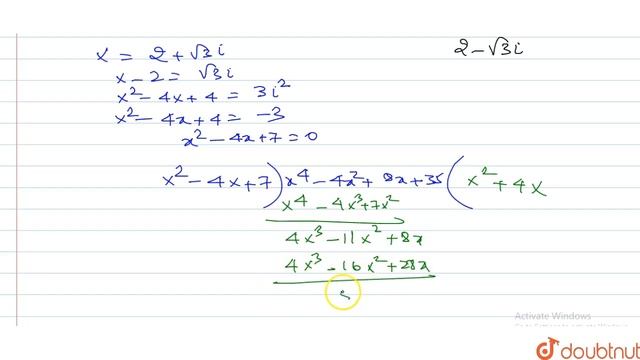 x = 2 + √3i
2 - √3i
x - 2 = √3i
x² - 4x + 4 = 3i²
x² - 4x + 4 = -3
x² - 4x + 7 = 0
x² - 4x + 7 ) x⁴ - 4x² + 8x + 35 ( x² + 4x
x⁴ - 4x³ + 7x²
4x³ - 11x² + 8x
4x³ - 16x² + 28x
5
Activate Windows
doubtnut